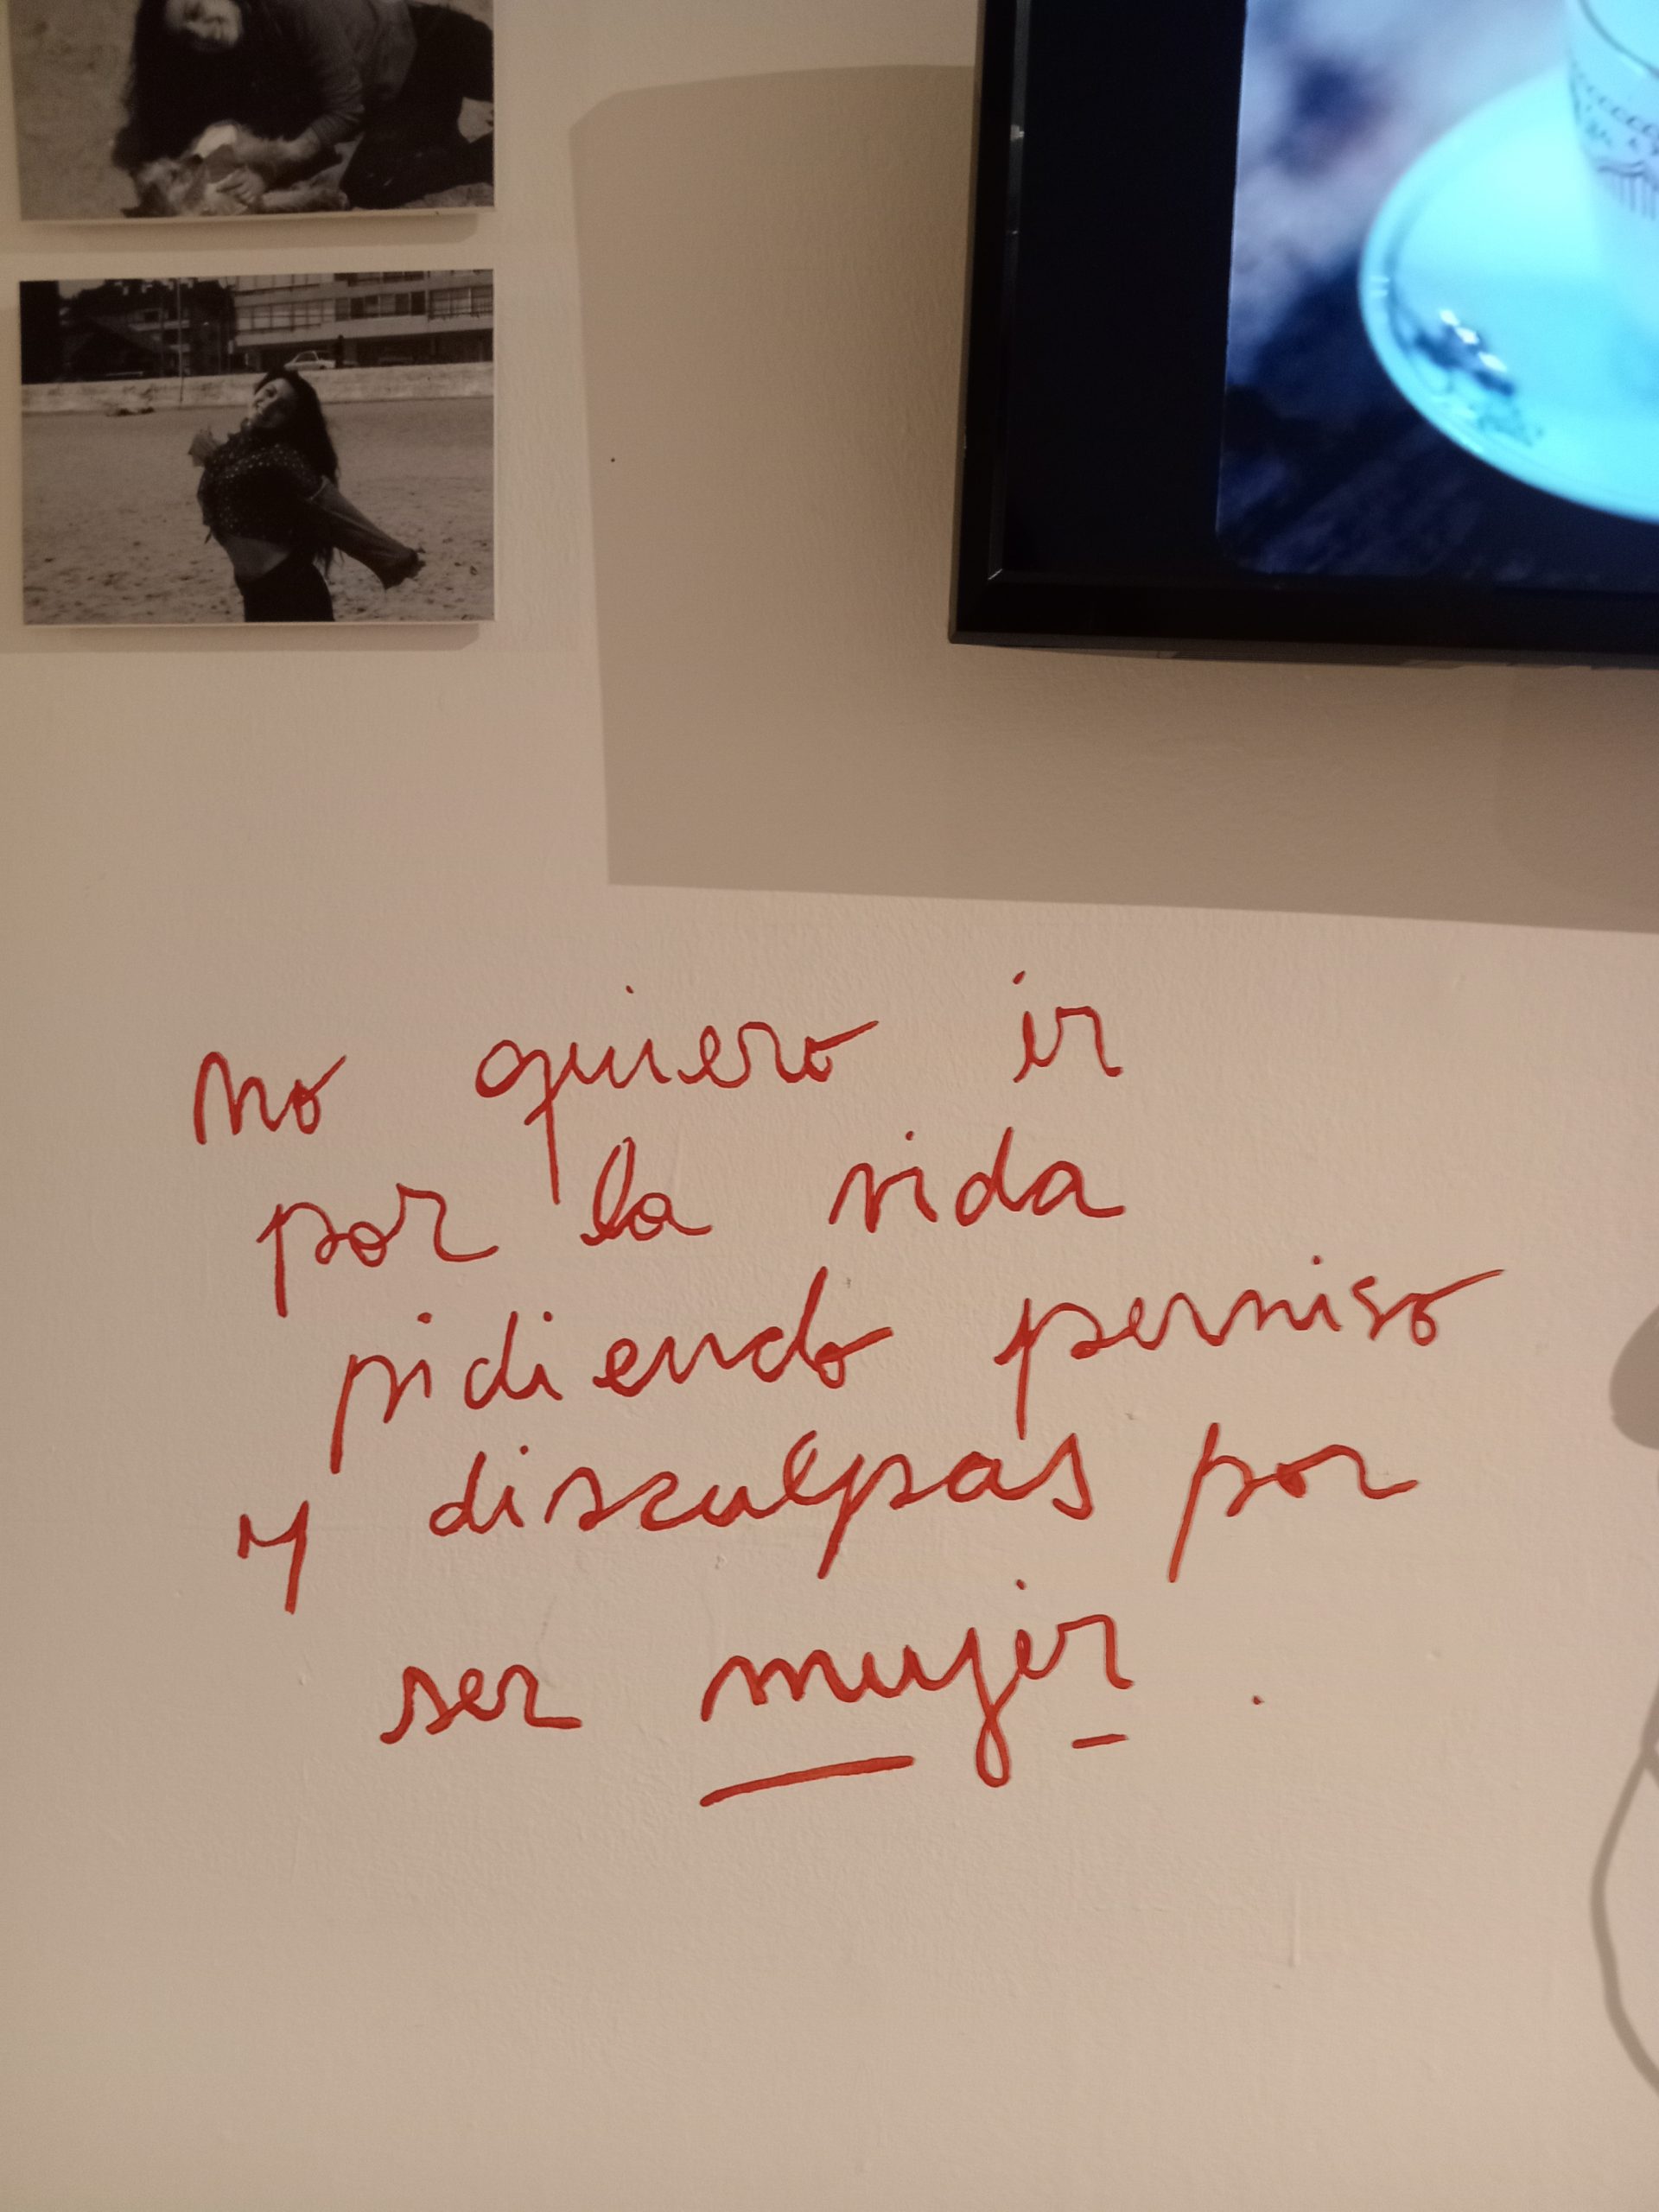 no quiero ir
por la vida
pidiendo permiso
y disculpas por
ser mujer.